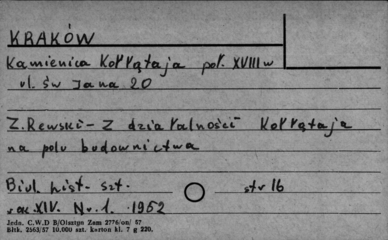 KRAKÓW
Kamienica Kołłątaja poł. XVIII w
ul. św Jana 20
Z. Rewski - Z działalności Kołłątaja
na polu budownictwa
Biul. hist. szt.
str 16
rok XIV. Nr. 1. 1952
Jedn. C.W.D B/Olsztyn Zam 2776/on/ 57
Bltk. 2563/57 10.000 szt. karton kl. 7 g 220.